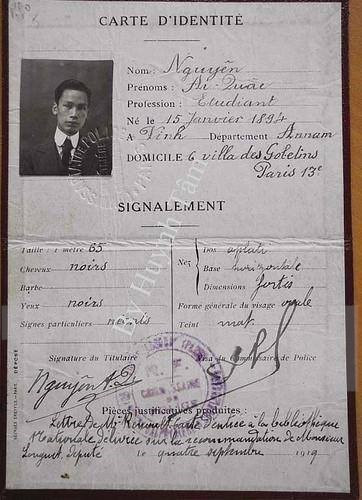 CARTE D'IDENTITÉ
Nom : Nguyễn
Prénoms : Ái-Quâc
Profession : Etudiant
Né le 15 Janvier 1894
A Vinh Département Annam
DOMICILE 6 villa des Gobelins
Paris 13e
SIGNALEMENT
Taille : 1 mètre 65
Cheveux noirs
Barbe
Yeux noirs
Signes particuliers néants
Nez
Dos aplati
Base horizontale
Dimensions fortes
Forme générale du visage ovale
Teint mat
Signature du Titulaire
Visa du Commissaire de Police
Nguyễn A. Q.
Pièces justificatives produites :
Lettre de Mr Carte d'entrée à la bibliothèque
Nationale délivrée sur la recommandation de Monsieur
Longuet, député le quatre septembre 1919
By Huynh Tâm